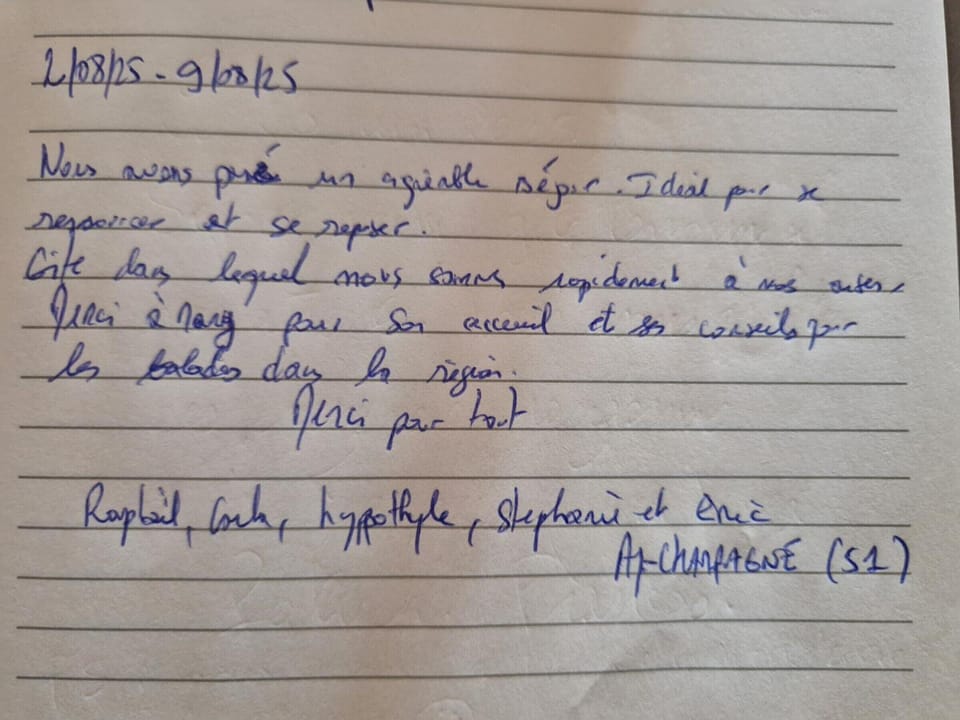 2/08/25 - 9/08/25
Nous avons passé un agréable séjour. Idéal pour se
ressourcer et se reposer.
Gîte dans lequel nous somms rapidement à nos
Merci à pour son acceuil et ses conseils pour
les balades dans la région.
Merci pour tout
Raphaël, hyppothyle, Stephanie et éric
AŸ-CHAMPAGNE (51)